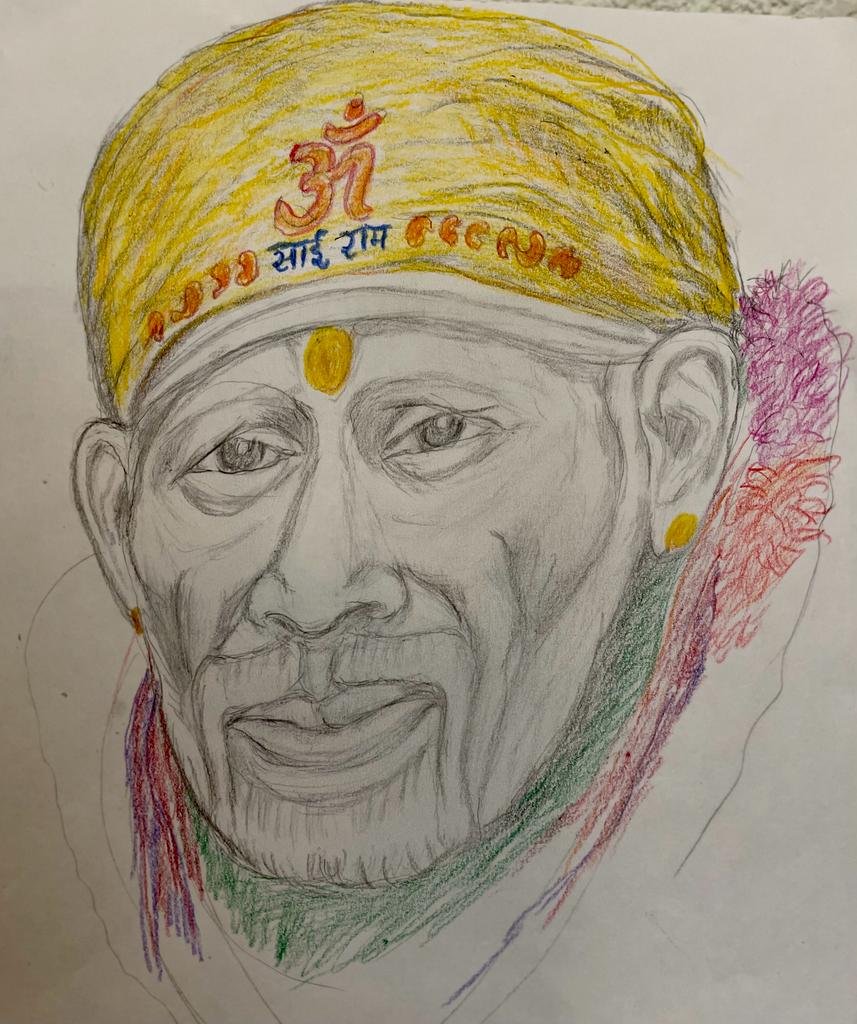 ॐ
साई राम